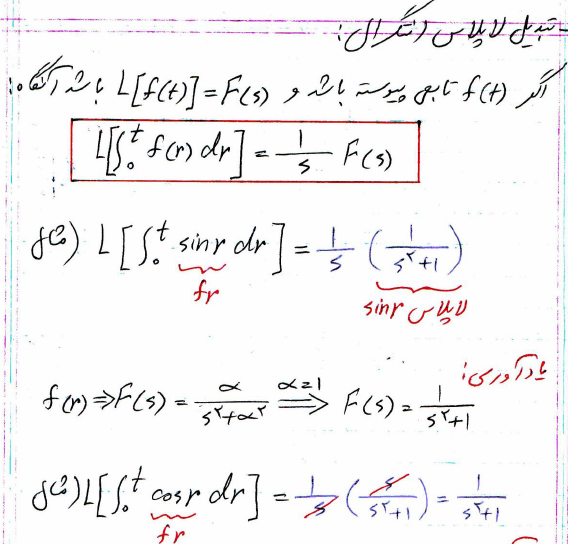 - تبدیل لاپلاس انتگرال:
اگر f(t) تابع پیوسته باشد و L[f(t)] = F(s) باشد آنگاه:
L[∫₀ᵗ f(r) dr] = 1/s F(s)
مثال) L[∫₀ᵗ sinr dr] = 1/s (1/(s²+1))
fr
لاپلاس sinr
یادآوری:
f(r) ⇒ F(s) = α/(s²+α²) ⇒ α=1 F(s) = 1/(s²+1)
مثال) L[∫₀ᵗ cosr dr] = 1/s (s/(s²+1)) = 1/(s²+1)
fr